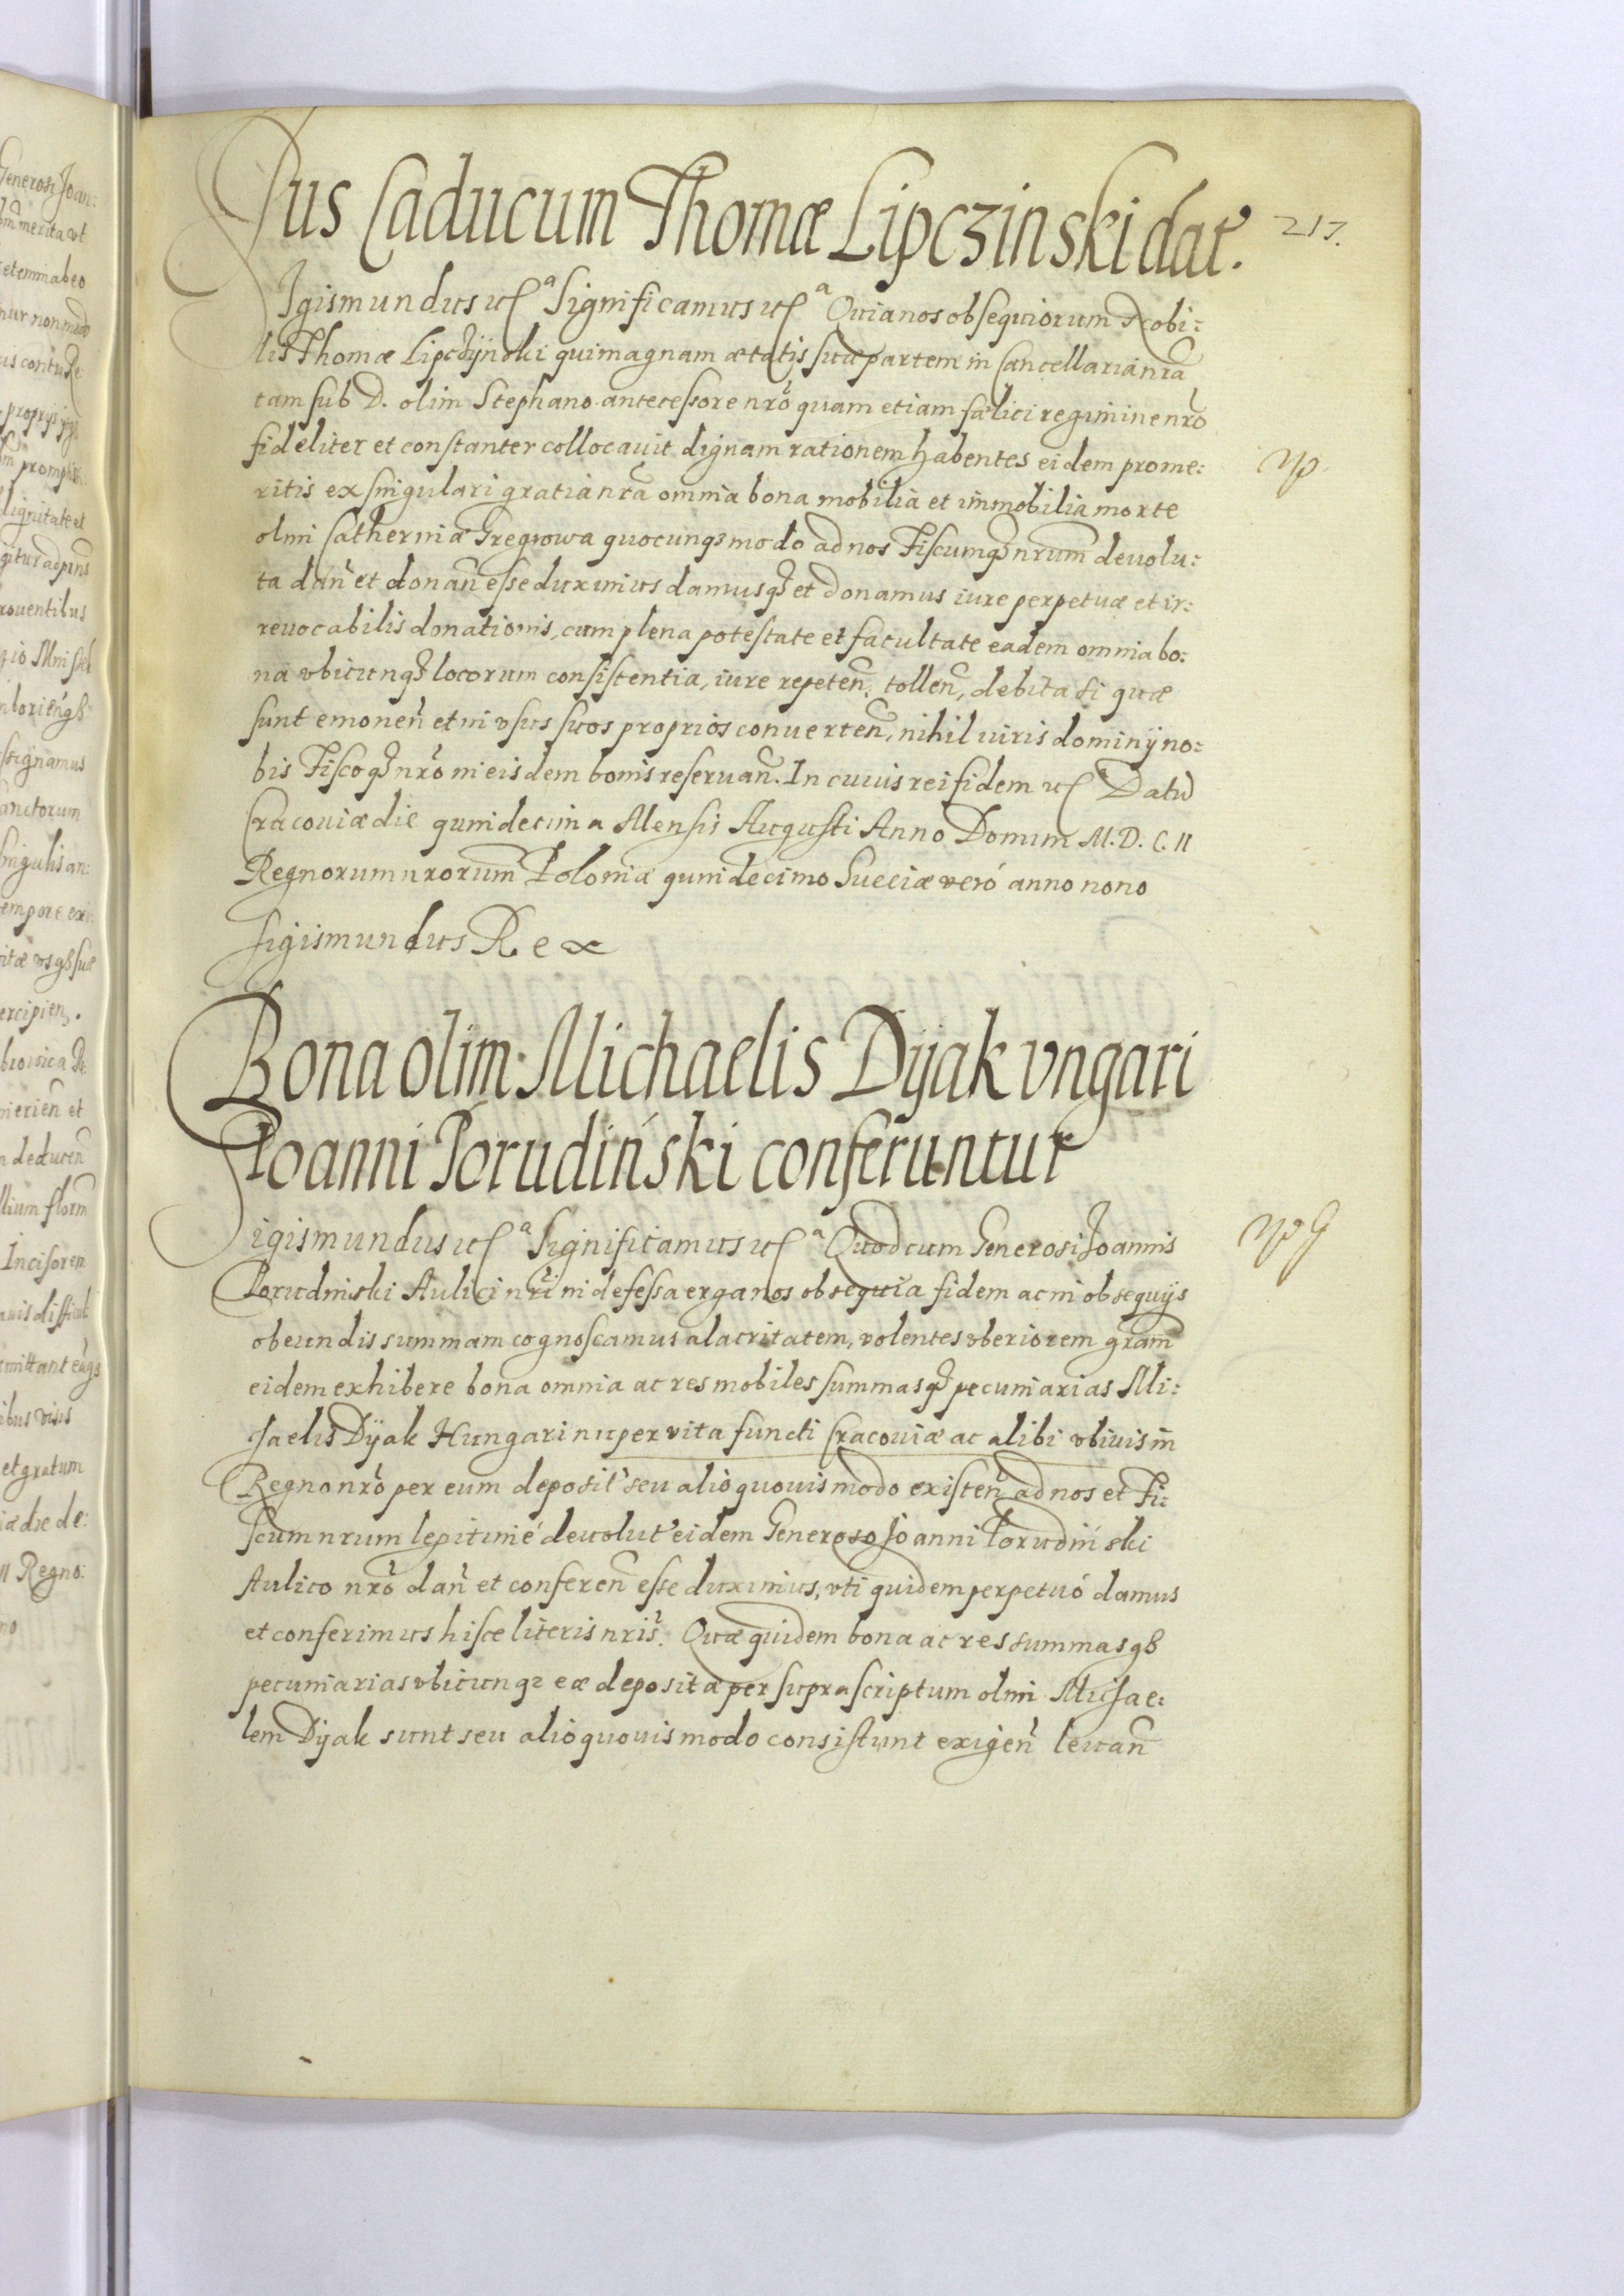 Ius Caducum Thomæ Lipczinski dat̃.
217.
Sigismundus etc̃ᵃ Significamus etc̃ᵃ Quia nos obsequiorum Nobi:
lis Thomæ Lipczÿnski qui magnam ætatis suæ partem in Cancellaria nr̃a
tam sub D. olim Stephano antecessore nrõ quam etiam fælici regimine nrõ
fideliter et constanter collocauit dignam rationem habentes eidem prome:
ritis ex singulari gratia nr̃a omnia bona mobilia et immobilia morte
olim Catherinæ Gregrowa quocunqꝫ modo ad nos Fiscumqꝫ nrũm deuolu:
ta dañ et donañ esse duximus damusqꝫ et donamus iure perpetuæ et ir:
reuocabilis donationis, cum plena potestate et facultate eadem omnia bo:
na vbicunqꝫ locorum consistentia, iure repeteñ, tolleñ, debita si quæ
sunt emoneñ et in vsus suos proprios conuerteñ, nihil iuris dominÿ no:
bis Fiscoqꝫ nrõ in eisdem bonis reseruañ. In cuius rei fidem etc̃ Datũ
Cracouiæ die quindecima Mensis Augusti Anno Domini M. D. C. II
Regnorum nrorũm Poloniæ quindecimo Sueciæ veró anno nono
Sigismundus Rex
Bona olim Michaelis Dÿak vngari
Ioanni Porudiński conferuntur
Sigismundus etc̃ᵃ Significamus etc̃ᵃ Quod cum Generosi Joannis
Porudinski Aulici nrĩ indefessa erga nos obsequia fidem ac in obsequÿs
obeundis summam cognoscamus alacritatem, volentes vberiorem grãm
eidem exhibere bona omnia ac res mobiles summasqꝫ pecuniarias Mi:
saelis Dÿak Hungari nuper vita functi Cracouiæ ac alibi vbiuis in
Regno nrõ per eum deposit̃ seu alio quouis modo existeñ ad nos et Fi:
scum nrum legitimé deuolut̃ eidem Generoso Joanni Porudiński
Aulico nrõ dañ et confereñ esse duximus, vti quidem perpetuó damus
et conferimus hisce literis nris̃. Quæ quidem bona ac res summasqꝫ
pecuniarias vbicunqꝫ eæ deposita per suprascriptum olim Misae:
lem Dÿak sunt seu alio quouis modo consistunt exigeñ leuañ